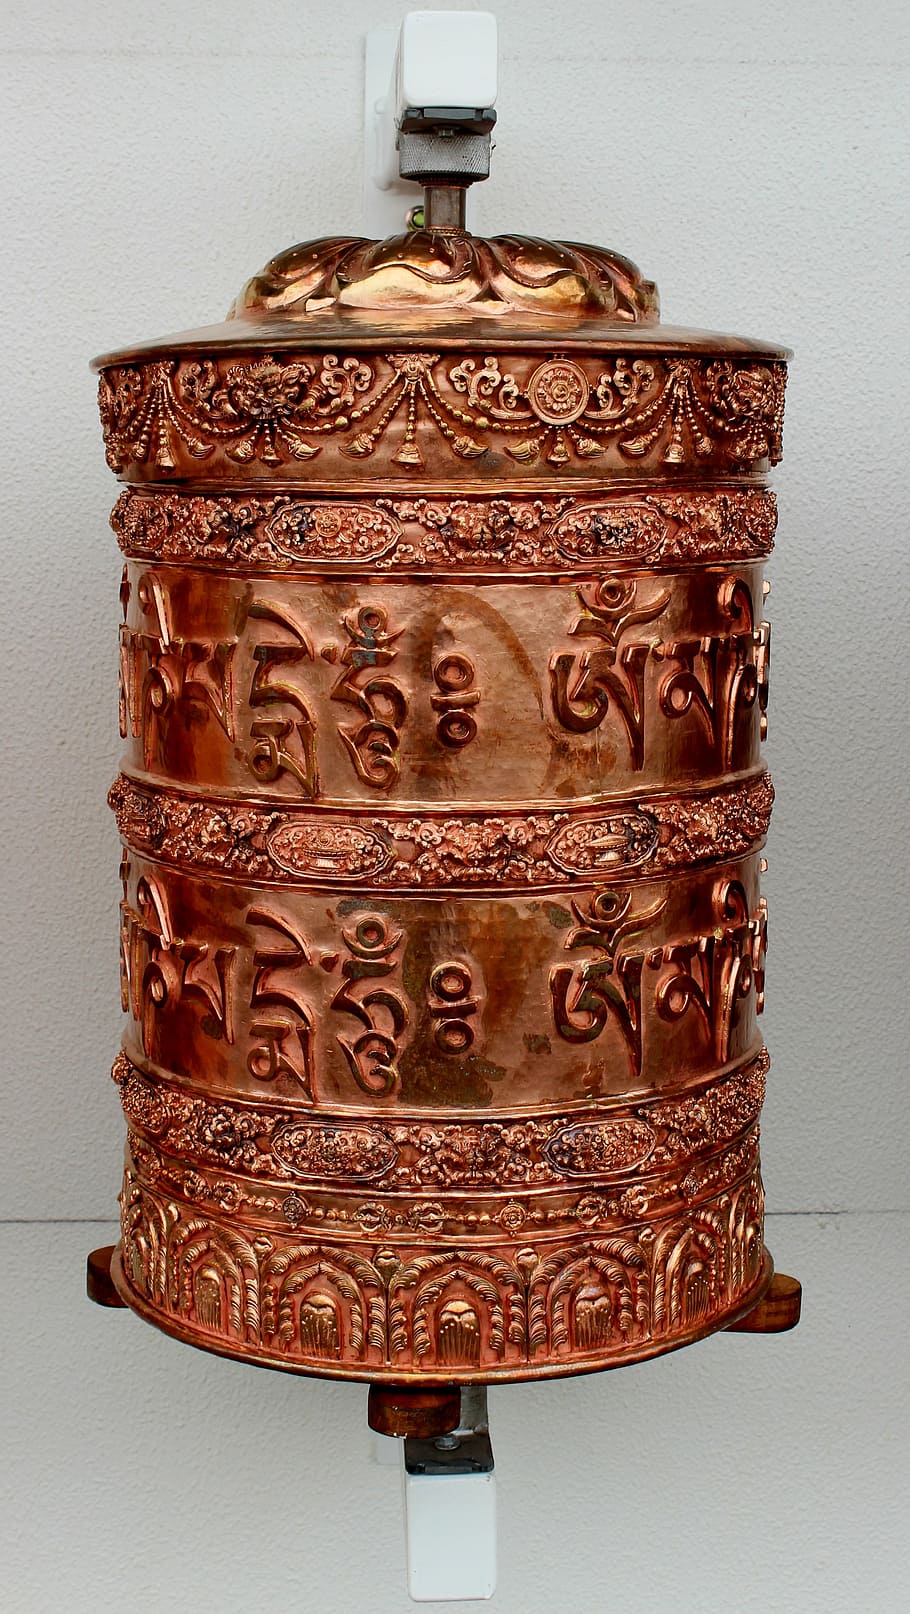 ཎི་པདྨེ་ཧཱུྃ༔ ཨོཾ་མཎི
ཎི་པདྨེ་ཧཱུྃ༔ ཨོཾ་མཎི